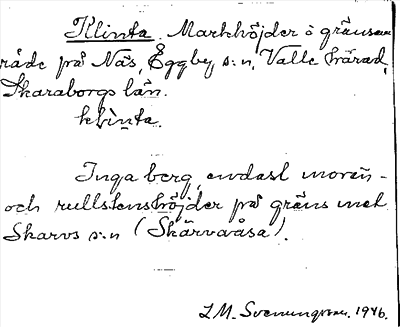 Klinta. Markhöjder å gränsom
råde på Näs, Eggby s:n, Valle härad,
Skaraborgs län.
klinta.
Inga berg, endast morän-
och rullstenshöjder på gräns mot
Skarvs s:n (Skärvaåsa).
L.M. Svenungsson. 1946.